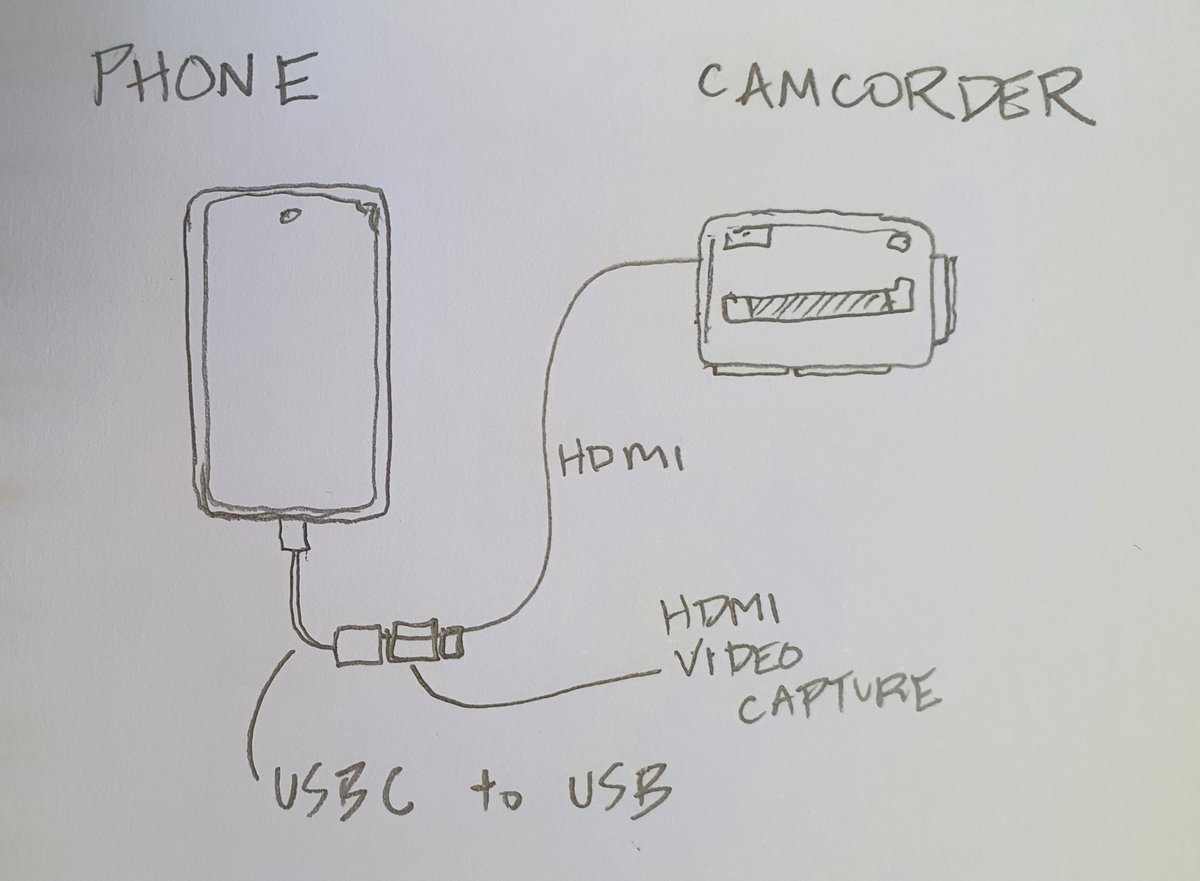 PHONE
CAMCORDER
HDMI
HDMI
VIDEO
CAPTURE
USBC to USB